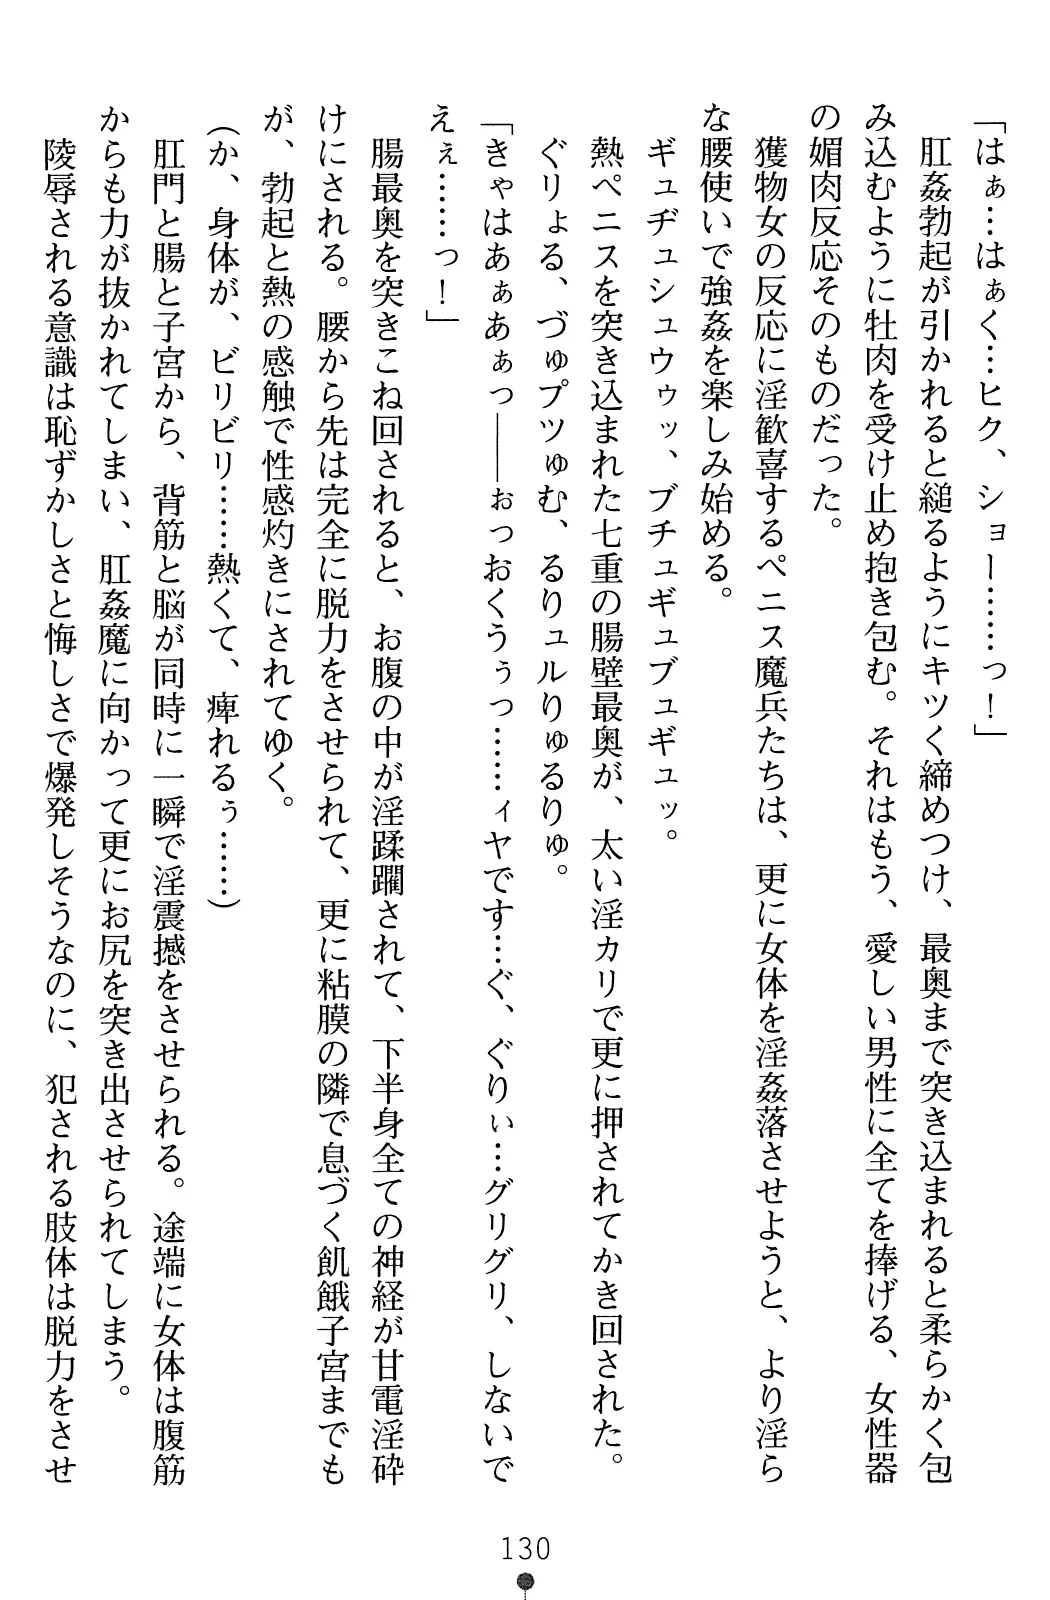 「はぁ…はぁく…ヒク、ショー……っ！」
肛姦勃起が引かれると縋るようにキツく締めつけ、最奥まで突き込まれると柔らかく包
み込むように牡肉を受け止め抱き包む。それはもう、愛しい男性に全てを捧げる、女性器
の媚肉反応そのものだった。
獲物女の反応に淫歓喜するペニス魔兵たちは、更に女体を淫姦落させようと、より淫ら
な腰使いで強姦を楽しみ始める。
ギュヂュシュウゥッ、ブチュギュブュギュッ。
熱ペニスを突き込まれた七重の腸壁最奥が、太い淫カリで更に押されてかき回された。
ぐリょる、づゅプツゅむ、るりュルりゅるりゅ。
「きゃはあぁあぁっ――ぉっおくうぅっ……ィヤです…ぐ、ぐりぃ…グリグリ、しないで
えぇ……っ！」
腸最奥を突きこね回されると、お腹の中が淫蹂躙されて、下半身全ての神経が甘電淫砕
けにされる。腰から先は完全に脱力をさせられて、更に粘膜の隣で息づく飢餓子宮までも
が、勃起と熱の感触で性感灼きにされてゆく。
（か、身体が、ビリビリ……熱くて、痺れるぅ……）
肛門と腸と子宮から、背筋と脳が同時に一瞬で淫震撼をさせられる。途端に女体は腹筋
からも力が抜かれてしまい、肛姦魔に向かって更にお尻を突き出させられてしまう。
陵辱される意識は恥ずかしさと悔しさで爆発しそうなのに、犯される肢体は脱力をさせ
130